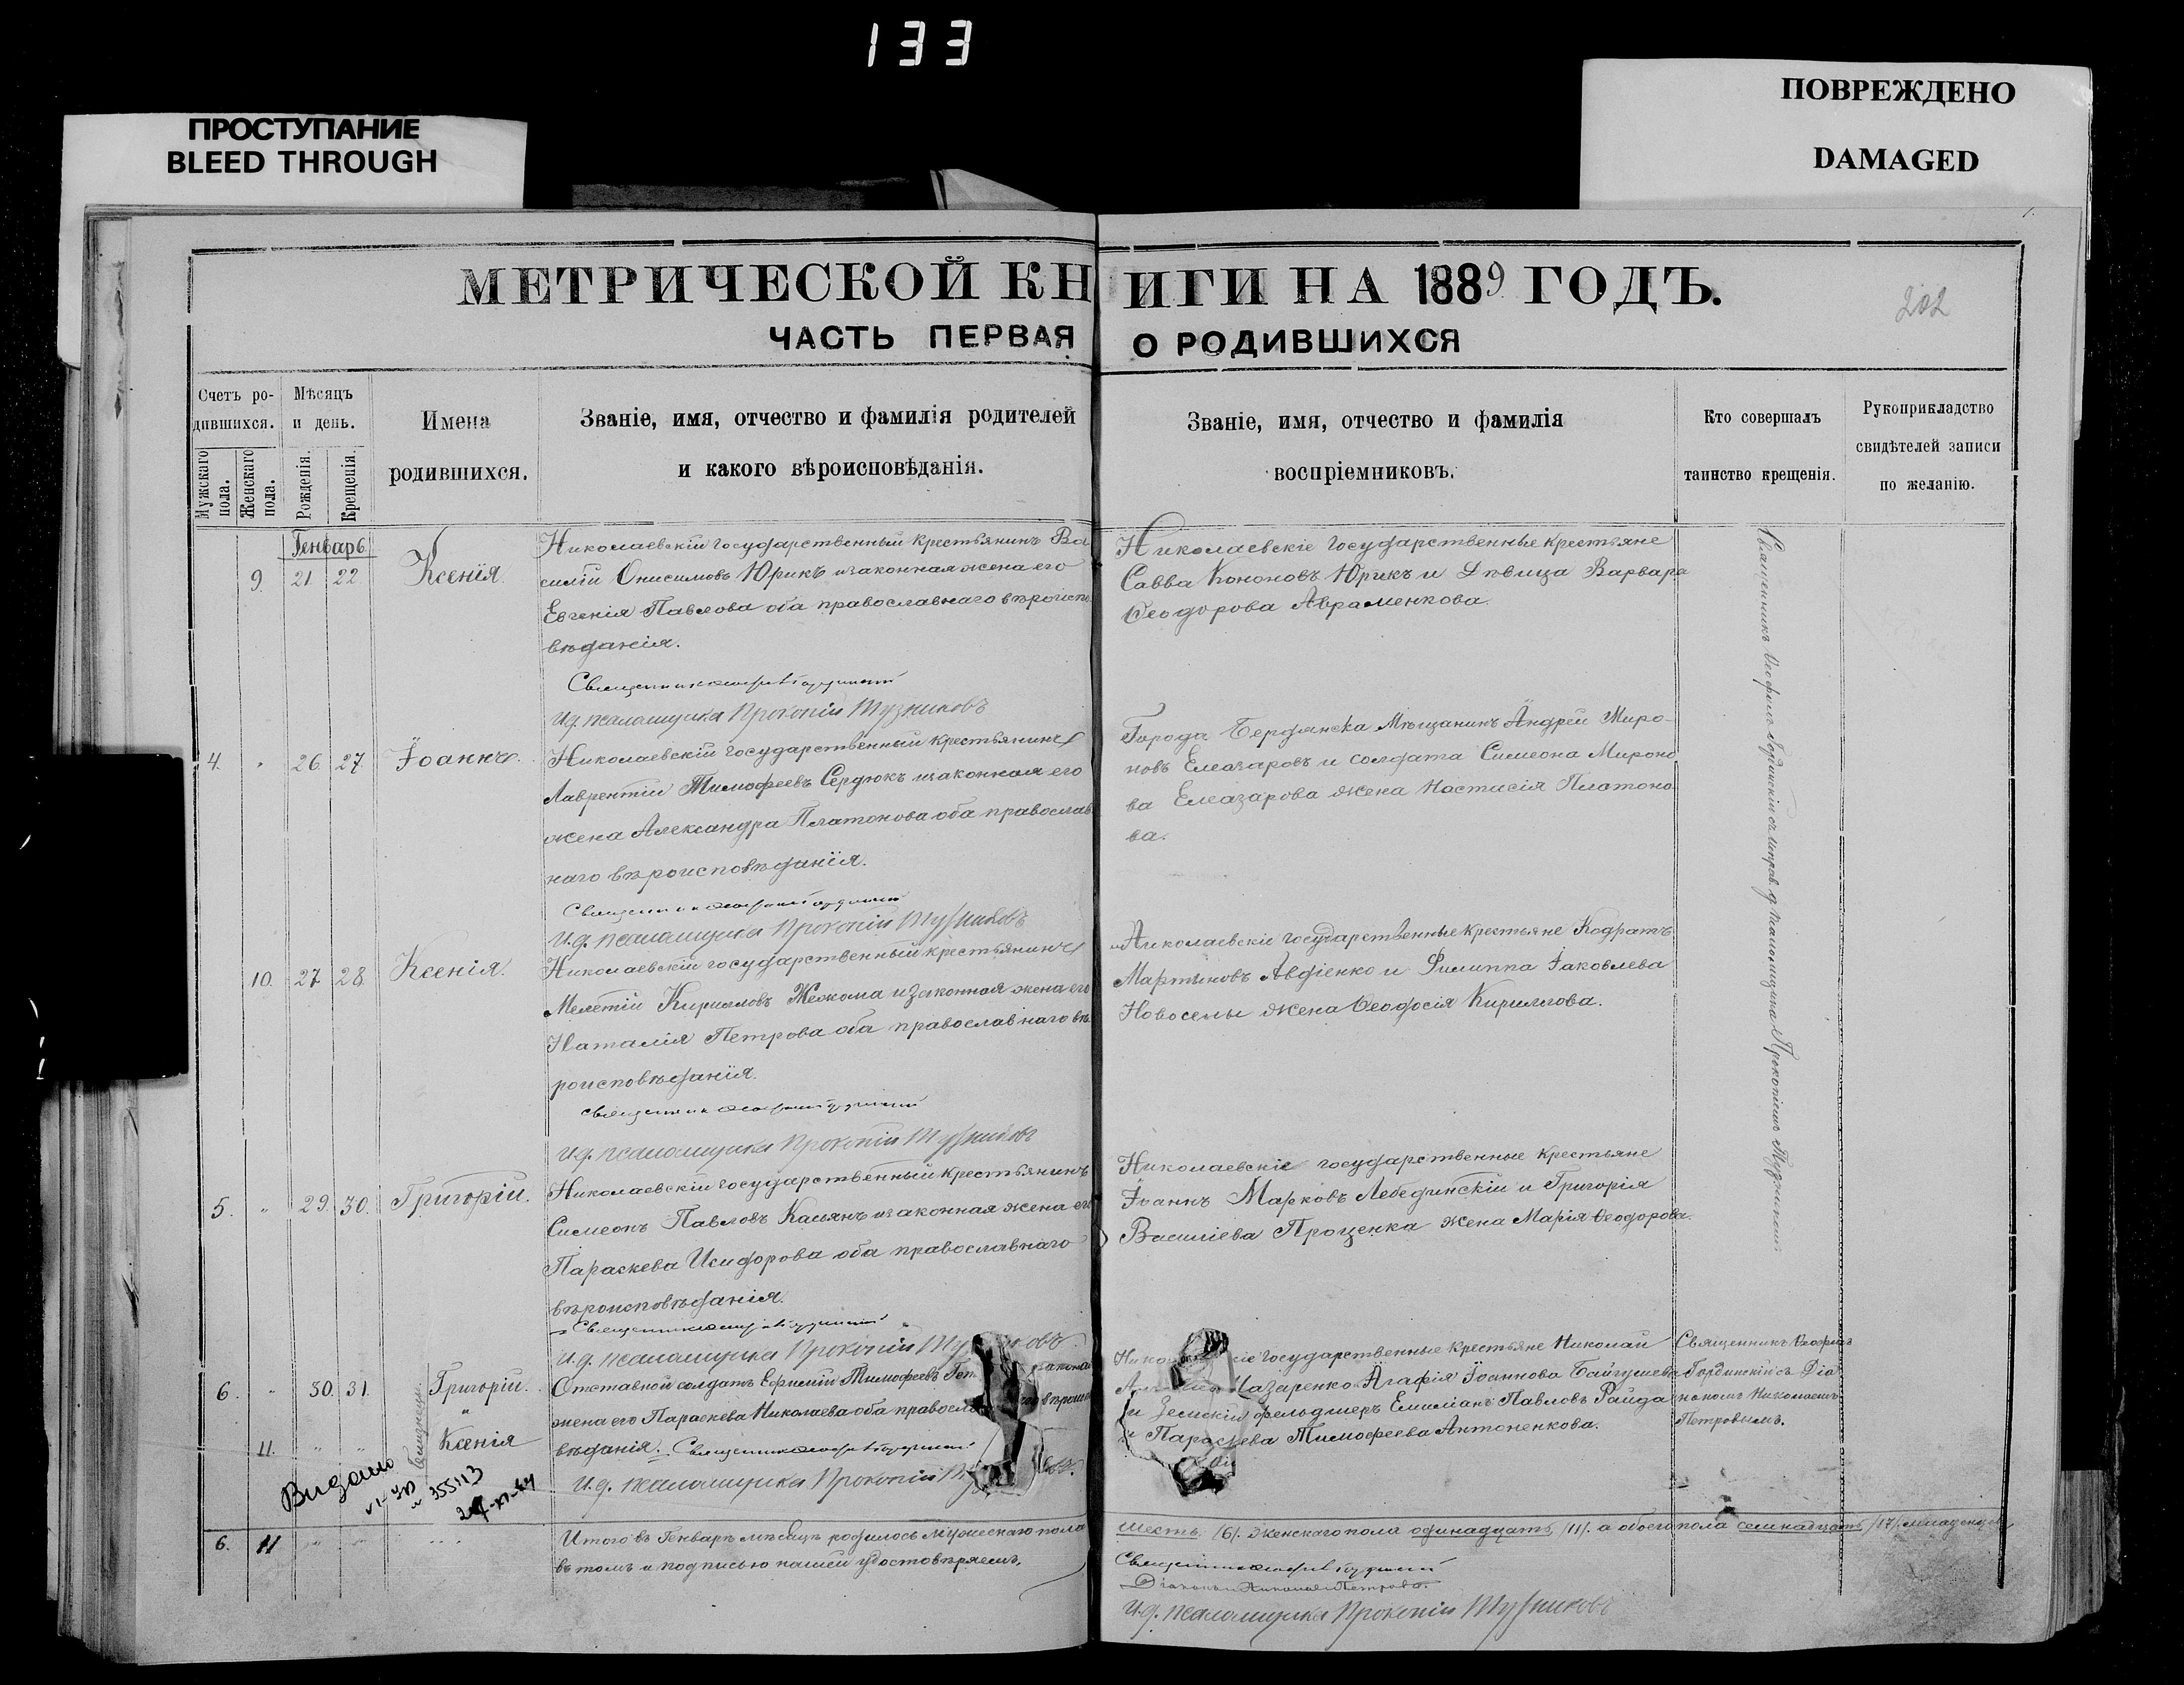 133
ПРОСТУПАНИЕ
BLEED THROUGH
ПОВРЕЖДЕНО
DAMAGED
МЕТРИЧЕСКОЙ КНИГИ НА 1889 ГОДЪ.
202
ЧАСТЬ ПЕРВАЯ О РОДИВШИХСЯ
Счетъ ро-
дившихся.
Мужскаго пола.
Женскаго пола.
Мѣсяцъ
и день.
Рожденія.
Крещенія.
Имена
родившихся.
Званіе, имя, отчество и фамилія родителей
и какого вѣроисповѣданія.
Званіе, имя, отчество и фамилія
воспріемниковъ.
Кто совершалъ
таинство крещенія.
Рукоприкладство
свидѣтелей записи
по желанію.
Генварь
9. 21. 22. Ксенія.
Николаевскій государственный крестьянинъ Ва
силій Онисимовъ Юрикъ и законная жена его
Евгенія Павлова оба православнаго вѣроиспо
вѣданія.
Священникъ
И.д. псаломщика Прокопій Тузниковъ
Николаевскіе государственные крестьяне
Савва Кононовъ Юрикъ и Дѣвица Варвара
Ѳеодорова Авраменкова.
4. " 26. 27. Іоаннъ.
Николаевскій государственный крестьянинъ
Лаврентій Тимофеевъ Сердюкъ и законная его
жена Александра Платонова оба православ
наго вѣроисповѣданія.
Священникъ
И.д. псаломщика Прокопій Тузниковъ
Города Бердянска Мѣщанинъ Андрей Миро-
новъ Елеазаровъ и солдата Симеона Мироно
ва Елеазарова жена Настасія Платоно
ва.
10. 27. 28. Ксенія.
Николаевскій государственный крестьянинъ
Мелетій Кириловъ и законная жена его
Наталія Петрова оба православнаго вѣ
роисповѣданія.
Священникъ
И.д. псаломщика Прокопій Тузниковъ
Николаевскіе государственные крестьяне Кодратъ
Мартыновъ Авдіенко и Филиппа Іаковлева
Новоселы жена Ѳеодосія Кириллова.
5. " 29. 30. Григорій.
Николаевскій государственный крестьянинъ
Симеонъ Павловъ Касьянъ и законная жена его
Параскева Исидорова оба православнаго
вѣроисповѣданія.
Священникъ
И.д. псаломщика Прокопій
Николаевскіе государственные крестьяне
Іоаннъ Марковъ Лебединскій и Григорія
Василіева Проценка жена Марія Ѳеодорова.
6. " 30. 31. Григорій.
11. " " Ксенія
близнецы
Отставной солдатъ Ефимій Тимофеевъ
жена его Параскева Николаева оба
вѣданія. Священникъ
И.д. псаломщика Прокопій
государственные крестьяне Николай
Назаренко Агафія Іоаннова
и Земскій фельдшеръ Емиліанъ Павловъ Райда
и Параскева Тимофеева Антоненкова.
Священникъ Ѳеофилъ
Гординскій съ Діа
кономъ Николаемъ
Петровымъ.
Видано
355113
6. 11
Итого въ Генварѣ мѣсяцѣ родилось мужескаго пола шесть /6/. женскаго пола одинадцать /11/. а обоего пола семнадцать /17/. младенцевъ,
въ томъ и подписью нашей удостовѣряемъ.
Священникъ
Діаконъ Николай Петровъ.
И.д. псаломщика Прокопій Тузниковъ